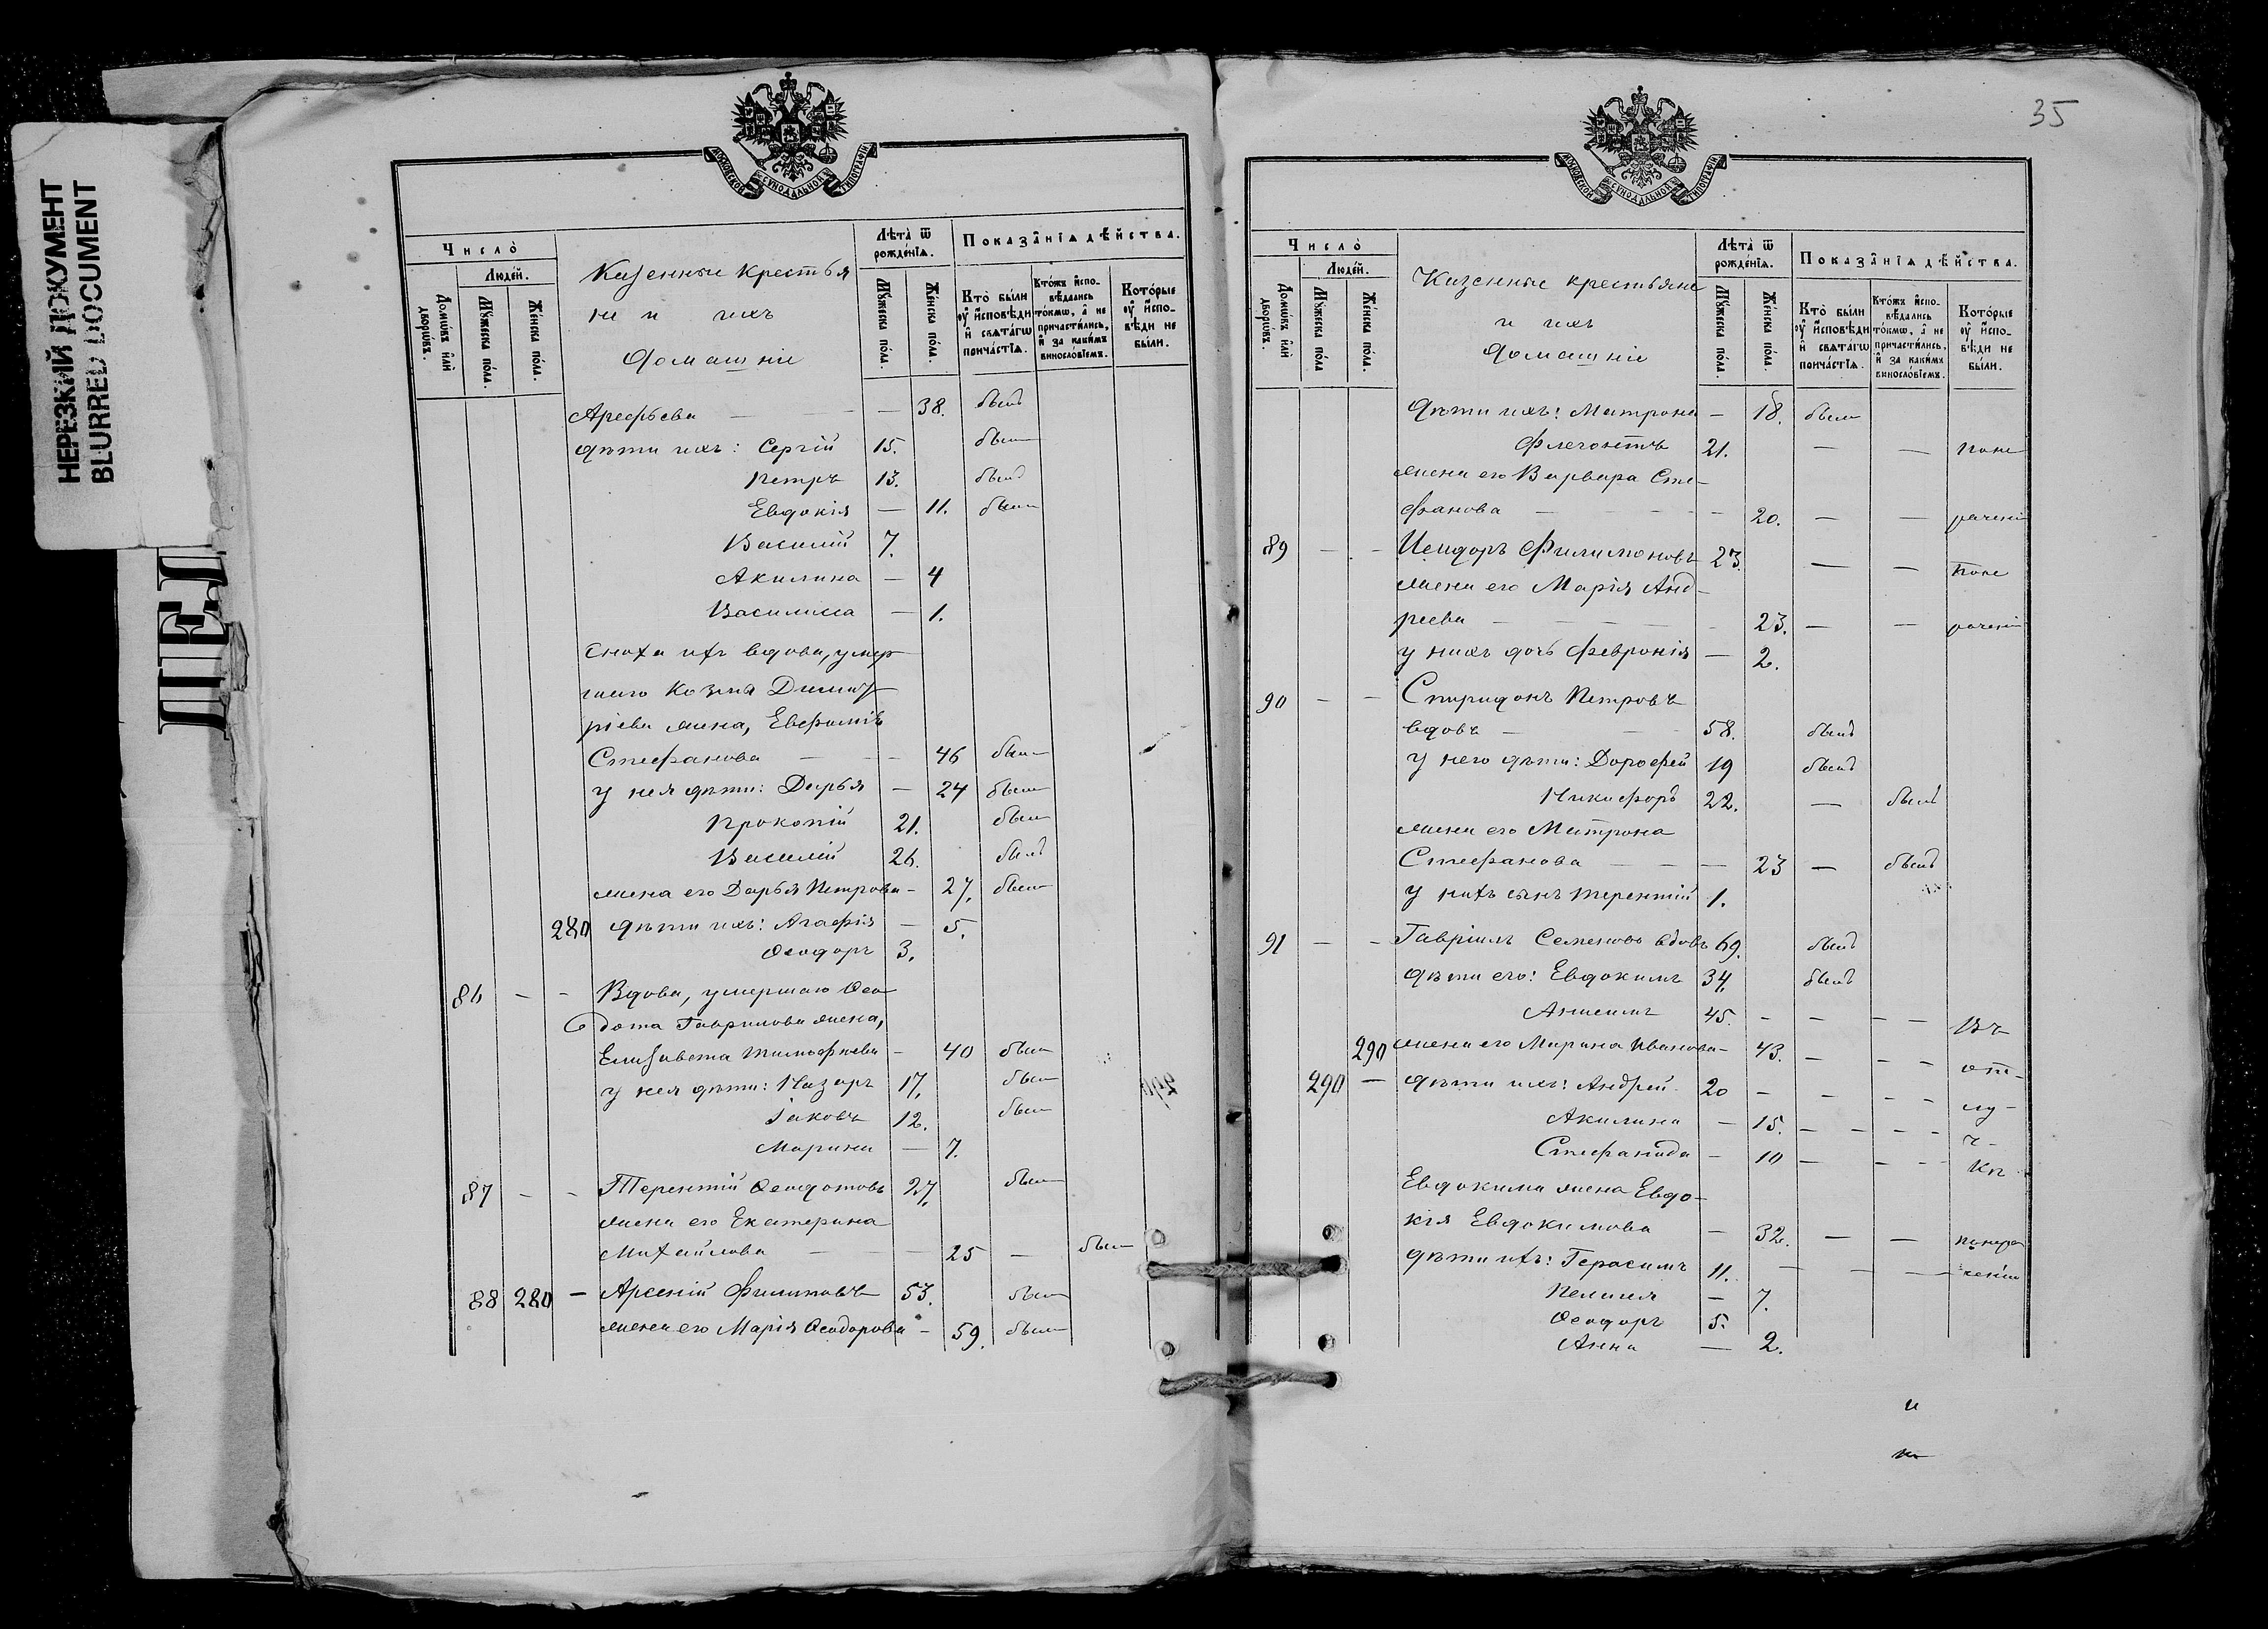 НЕРЕЗКИЙ ДОКУМЕНТ
BLURRED DOCUMENT
МОСКОВСКОЙ СУНОДАЛЬНОЙ ТИПОГРАФІИ
Число̀
Людéй.
Домѡ́въ и҆лѝ дворѡ́въ.
Мꙋ́жеска по́ла.
Же́нска по́ла.
Казенные крестья
не и ихъ
домашніе
Лѣ́та ѿ рожде́нїѧ.
Мꙋ́жеска по́ла.
Же́нска по́ла.
Показа̂нїѧ дѣ́йства.
Кто̀ бы́ли ᲂу҆ и҆́сповѣди и҆ свѧта́гѡ прича́стїѧ.
Кто́жъ и҆сповѣ́дались то́кмѡ, а҆ не причасти́лись, и҆ за каки́мъ винослóвїемъ.
Кото́рые ᲂу҆ и҆́сповѣди не бы́ли.
Арефьева — — 38. былъ
дѣти ихъ: Сергій 15. были
Петръ 13. былъ
Евдокія — 11. были
Василій 7.
Акилина — 4
Василиса — 1.
Сноха ихъ вдова, умер
шаго Козмы Димит
ріева жена, Евфимія
Стефанова — — 46 были
у нея дѣти: Дарья — 24 были
Прокопій 21. были
Василій 26. былъ
жена его Дарья Петрова — 27. были
280 дѣти ихъ: Агафія — 5.
Ѳеодоръ 3.
86 — — Вдова, умершаго Ѳео
дота Гаврилова жена,
Елисавета Тимофеева — 40 были
у нея дѣти: Назаръ 17. были
Іаковъ 12. были
Марина — 7.
87 — — Терентій Ѳеодотовъ 27. были
жена его Екатерина
Михайлова — — 25 — были
88 280 — Арсеній Филиповъ 53. были
жена его Марія Ѳеодорова — 59. были
35
МОСКОВСКОЙ СУНОДАЛЬНОЙ ТИПОГРАФІИ
Число̀
Людéй.
Домѡ́въ и҆лѝ дворѡ́въ.
Мꙋ́жеска по́ла.
Же́нска по́ла.
Казенные крестьяне
и ихъ
домашніе
Лѣ́та ѿ рожде́нїѧ.
Мꙋ́жеска по́ла.
Же́нска по́ла.
Показа̂нїѧ дѣ́йства.
Кто̀ бы́ли ᲂу҆ и҆́сповѣди и҆ свѧта́гѡ прича́стїѧ.
Кто́жъ и҆сповѣ́дались то́кмѡ, а҆ не причасти́лись, и҆ за каки́мъ винослóвїемъ.
Кото́рые ᲂу҆ и҆́сповѣди не бы́ли.
дѣти ихъ: Матрона — 18. были
Флегонтъ 21. — — поне
жена его Варвара Сте-
фанова — — 20. — — раченію
89 — — Исидоръ Филимоновъ 23. — — Поне
жена его Марія Анд-
реева — — 23. — — раченію
у нихъ дочь Февронія — 2.
90 — — Спиридонъ Петровъ
вдовъ — — 58. былъ
у него дѣти: Дорофей 19 былъ
Никифоръ 22. — былъ
жена его Матрона
Стефанова — — 23 — былъ
у нихъ сынъ Терентій 1.
91 — — Гавріилъ Семеновъ вдовъ 69. былъ
дѣти его: Евдокимъ 34. былъ
Анисимъ 45. — — — Въ
290 жена его Марина Иванова — 43. — — от-
290 — дѣти ихъ: Андрей 20 — — — лу-
Акилина — 15. — — ч-
Стефанида — 10 — —
Евдокима жена Евдо-
кія Евдокимова — 32. — — понера
дѣти ихъ: Герасимъ 11. — — — ченію
Пелагея — 7.
Ѳеодоръ 5.
Анна — 2.